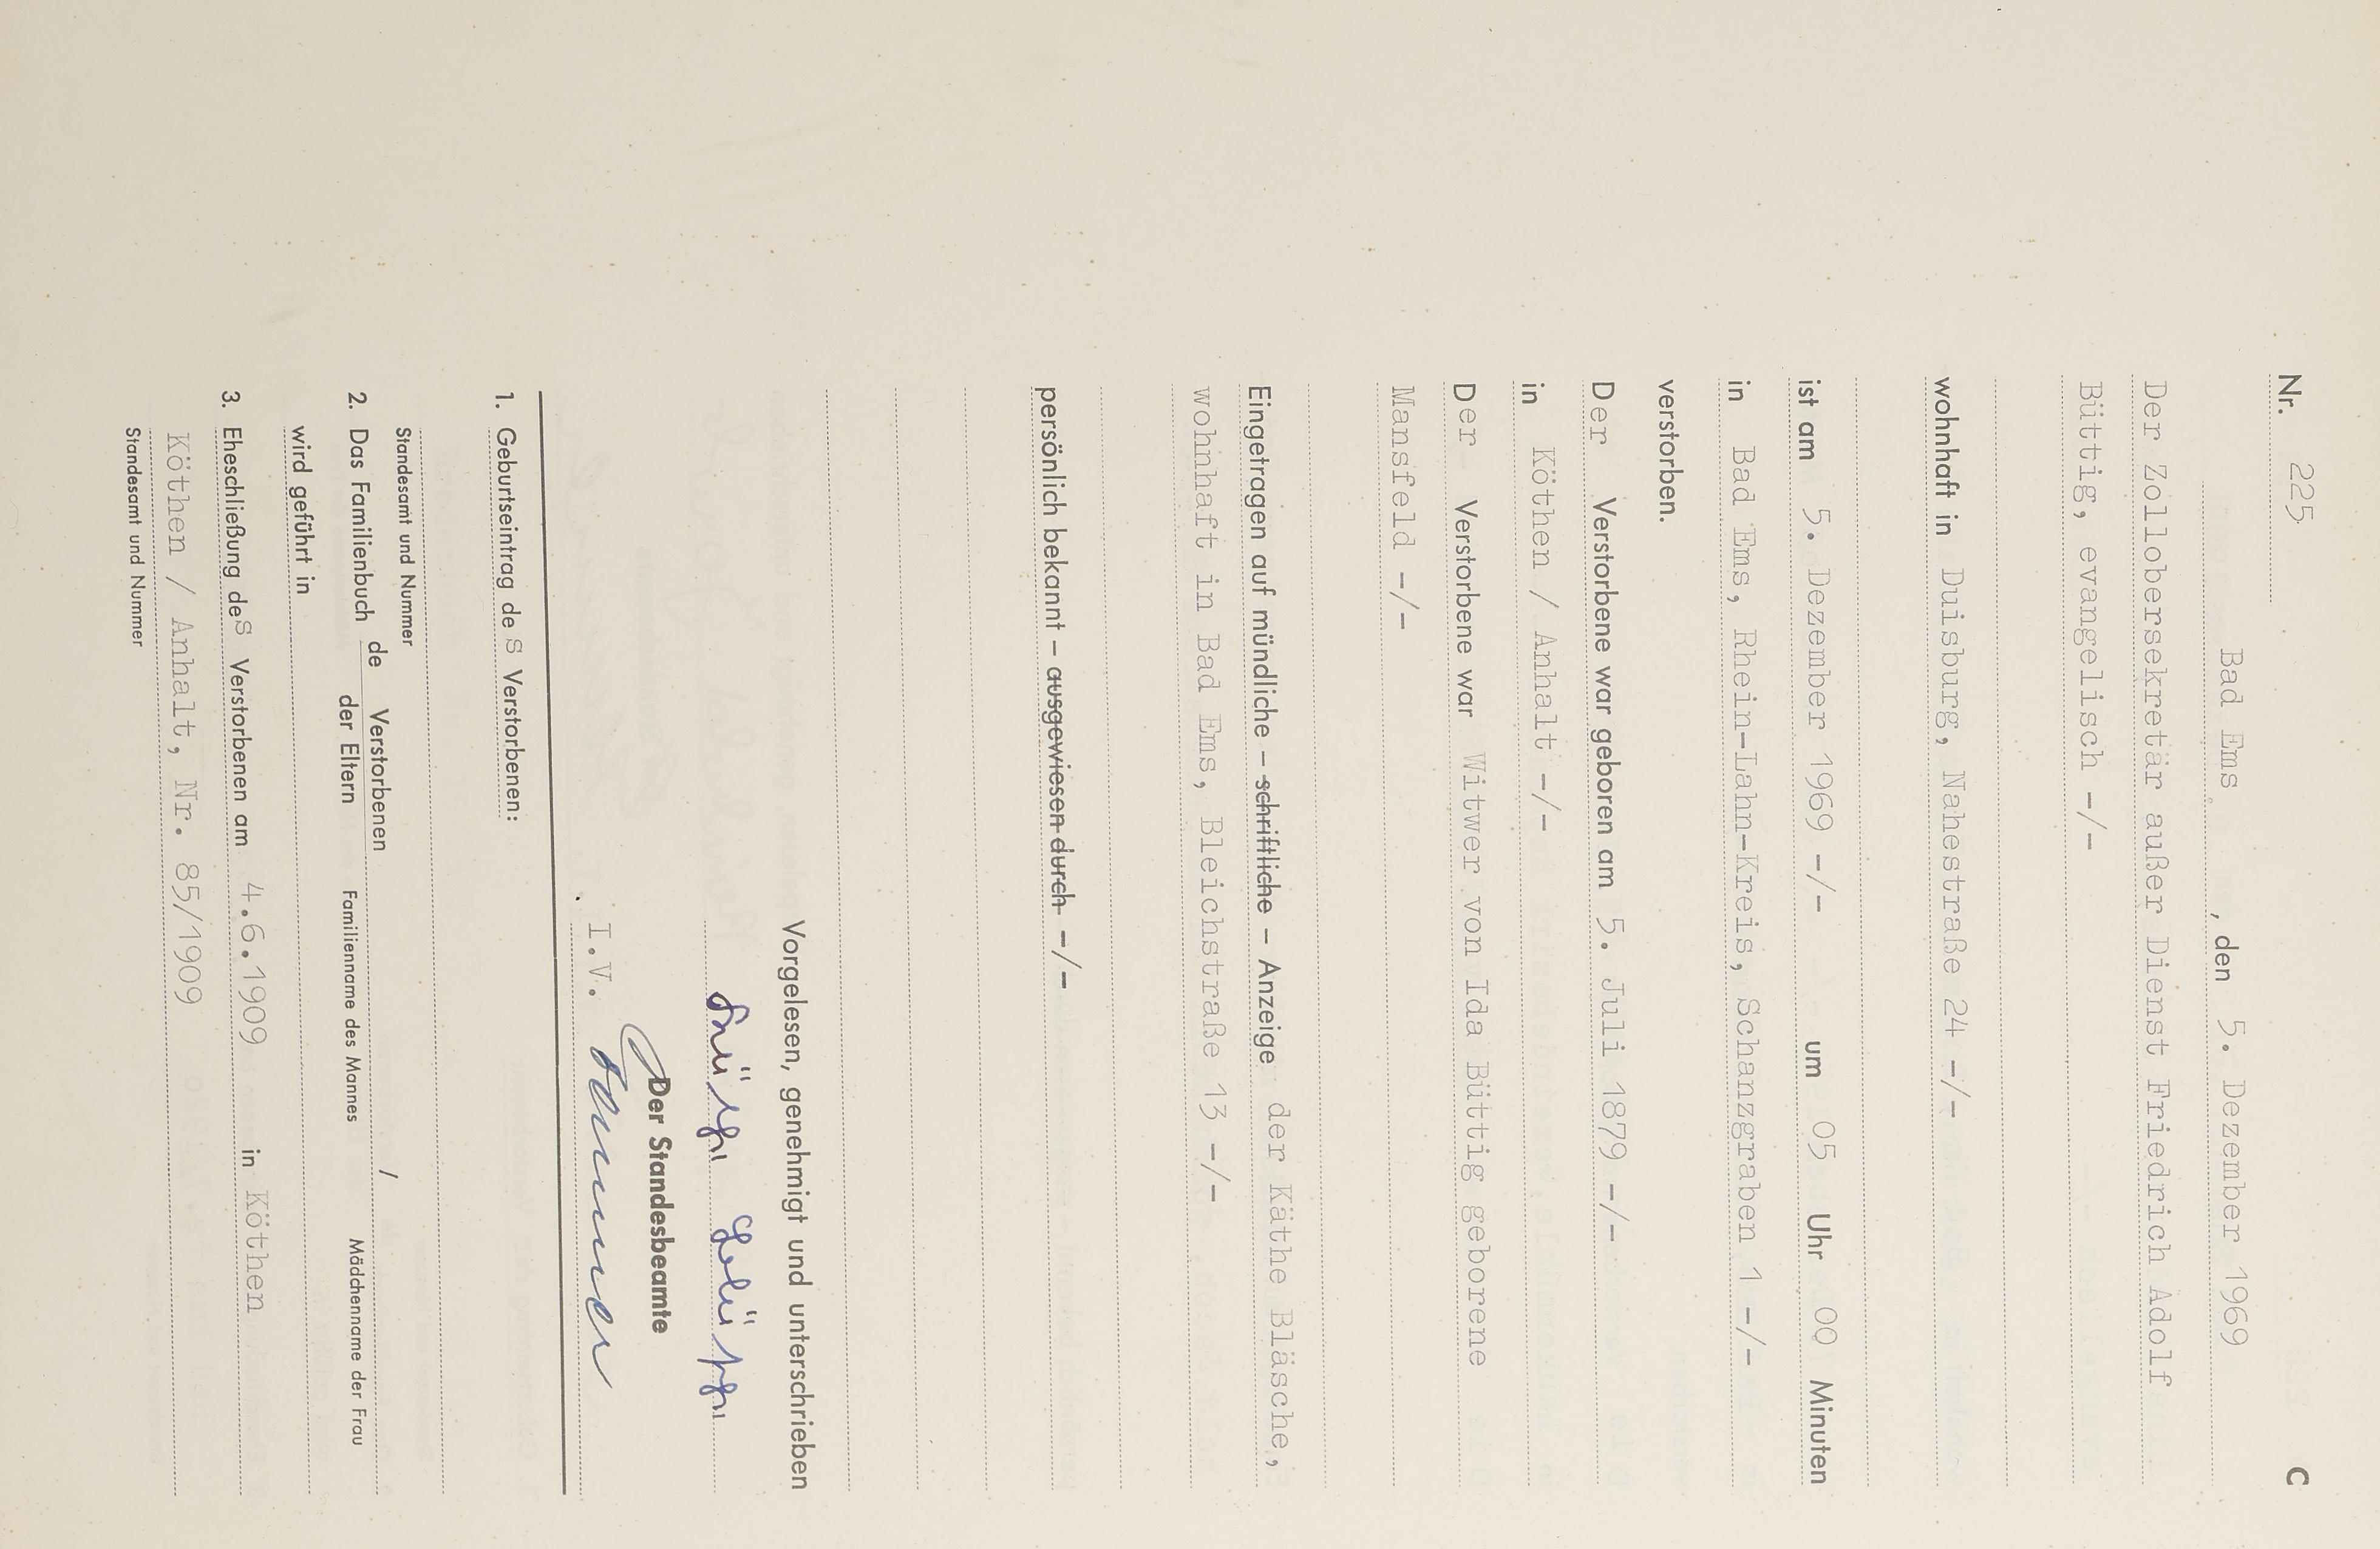 Nr. 225 C
Bad Ems, den 5. Dezember 1969
Der Zollobersekretär außer Dienst Friedrich Adolf
Büttig, evangelisch -/-
wohnhaft in Duisburg, Nahestraße 24 -/-
ist am 5. Dezember 1969 -/- um 05 Uhr 00 Minuten
in Bad Ems, Rhein-Lahn-Kreis, Schanzgraben 1 -/-
verstorben.
Der Verstorbene war geboren am 5. Juli 1879 -/-
in Köthen / Anhalt -/-
Der Verstorbene war Witwer von Ida Büttig geborene
Mansfeld -/-
Eingetragen auf mündliche – schriftliche – Anzeige der Käthe Bläsche,
wohnhaft in Bad Ems, Bleichstraße 13 -/-
persönlich bekannt – ausgewiesen durch -/-
Vorgelesen, genehmigt und unterschrieben
Der Standesbeamte
I.V.
1. Geburtseintrag des Verstorbenen:
Standesamt und Nummer
2. Das Familienbuch de Verstorbenen /
der Eltern Familienname des Mannes Mädchenname der Frau
wird geführt in
3. Eheschließung des Verstorbenen am 4.6.1909 in Köthen
Köthen / Anhalt, Nr. 85/1909
Standesamt und Nummer